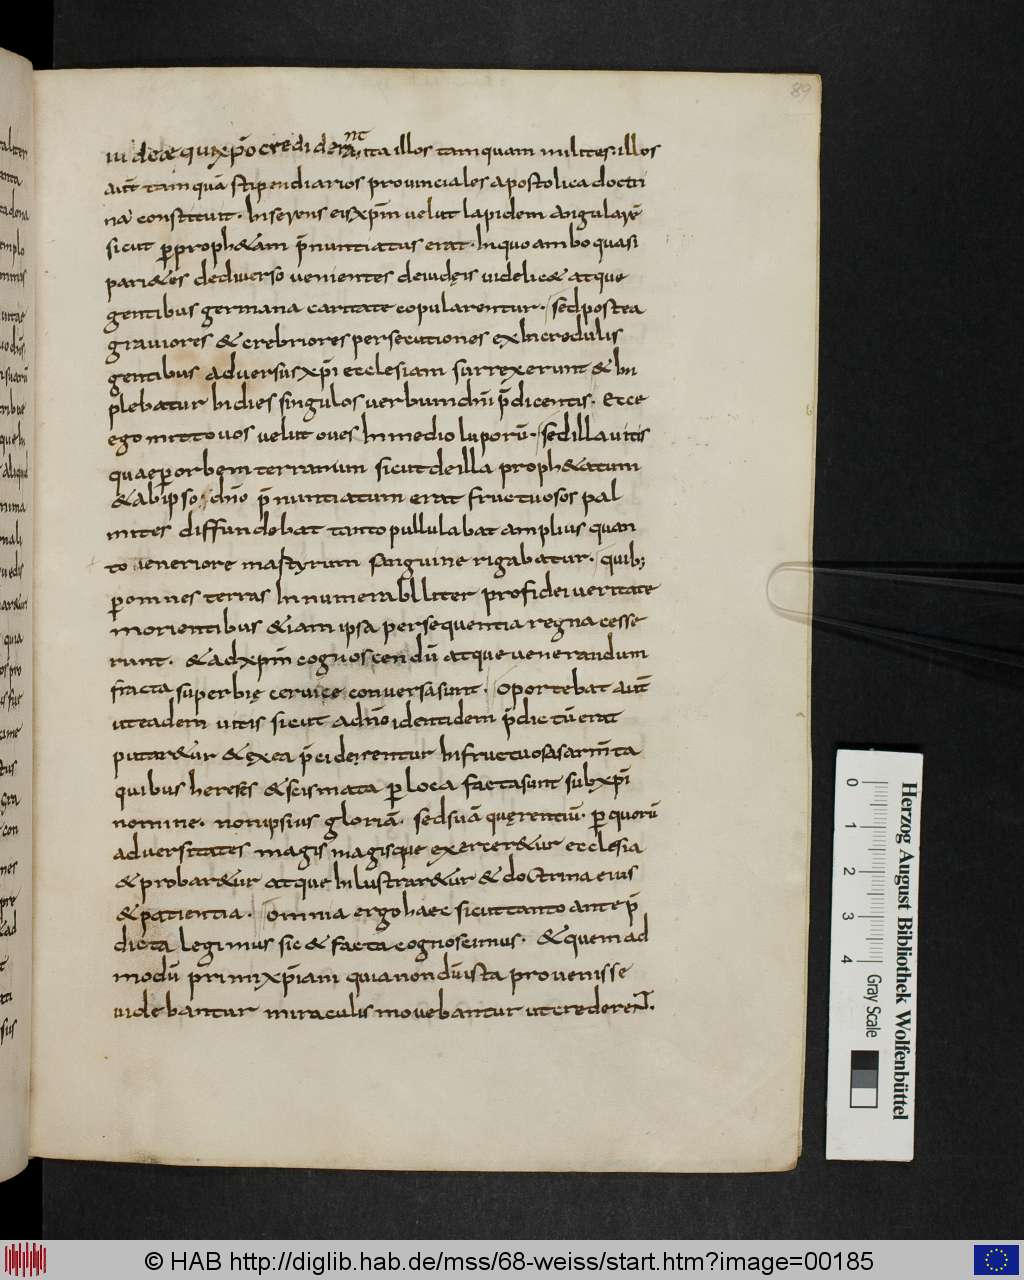 89
iudeae qui xp̄o crediderant ita illos tamquam milites illos
aut̄ tamquā stipendiarios prouinciales apostolica doctri
na constituit. hi seruiens eis xp̄m uelut lapidem angularē
sicut ꝑ proph&am p̄nuntiatus erat. In quo ambo quasi
pari&es de diuerso uenientes de iudęis uidelic& atque
gentibus germana caritate copularentur. sed postea
grauiores & crebriores persecutiones ex incredulis
gentibus aduersus xp̄i ecclesiam surrexerunt & in
plebatur in dies singulos uerbum dn̄i p̄dicentis. Ecce
ego mitto uos uelut oues In medio luporū. sed illa uitis
quae ꝑ orbem terrarum sicut de illa proph&atum
& ab ipso dn̄o p̄nuntiatum erat fructuosos pal
mites diffundebat tanto pullulabat amplius quan
to ueneriore martyrum sanguine rigabatur. quib;
ꝑ omnes terras Innumerabiliter pro fidei ueritate
morientibus &iam ipsa persequentia regna cesse
runt. & ad xp̄m cognoscendū atque uenerandum
fracta superbię ceruice conuersa sunt. Oportebat aut̄
ut eadem uitis sicut a dn̄o identidem p̄dictū erat
putar&ur & ex ea p̄ciderentur Infructuosa sarm̄ta
quibus hereses & scismata ꝑ loca facta sunt sub xp̄i
nomine. non ipsius gloriā. sed suā quęrentiū. ꝑ quorū
aduersitates magis magisque exercer&ur ecclesia
& probar&ur atque Inlustrar&ur & doctrina eius
& patientia. Omnia ergo haec sicut tanto ante p̄
dicta legimus sic & facta cognoscimus. & quem ad
modū primi xp̄iani quia nondū ista prouenisse
uidebantur miraculis mouebantur ut crederent.
0 1 2 3 4
Herzog August Bibliothek Wolfenbüttel
Gray Scale
© HAB http://diglib.hab.de/mss/68-weiss/start.htm?image=00185